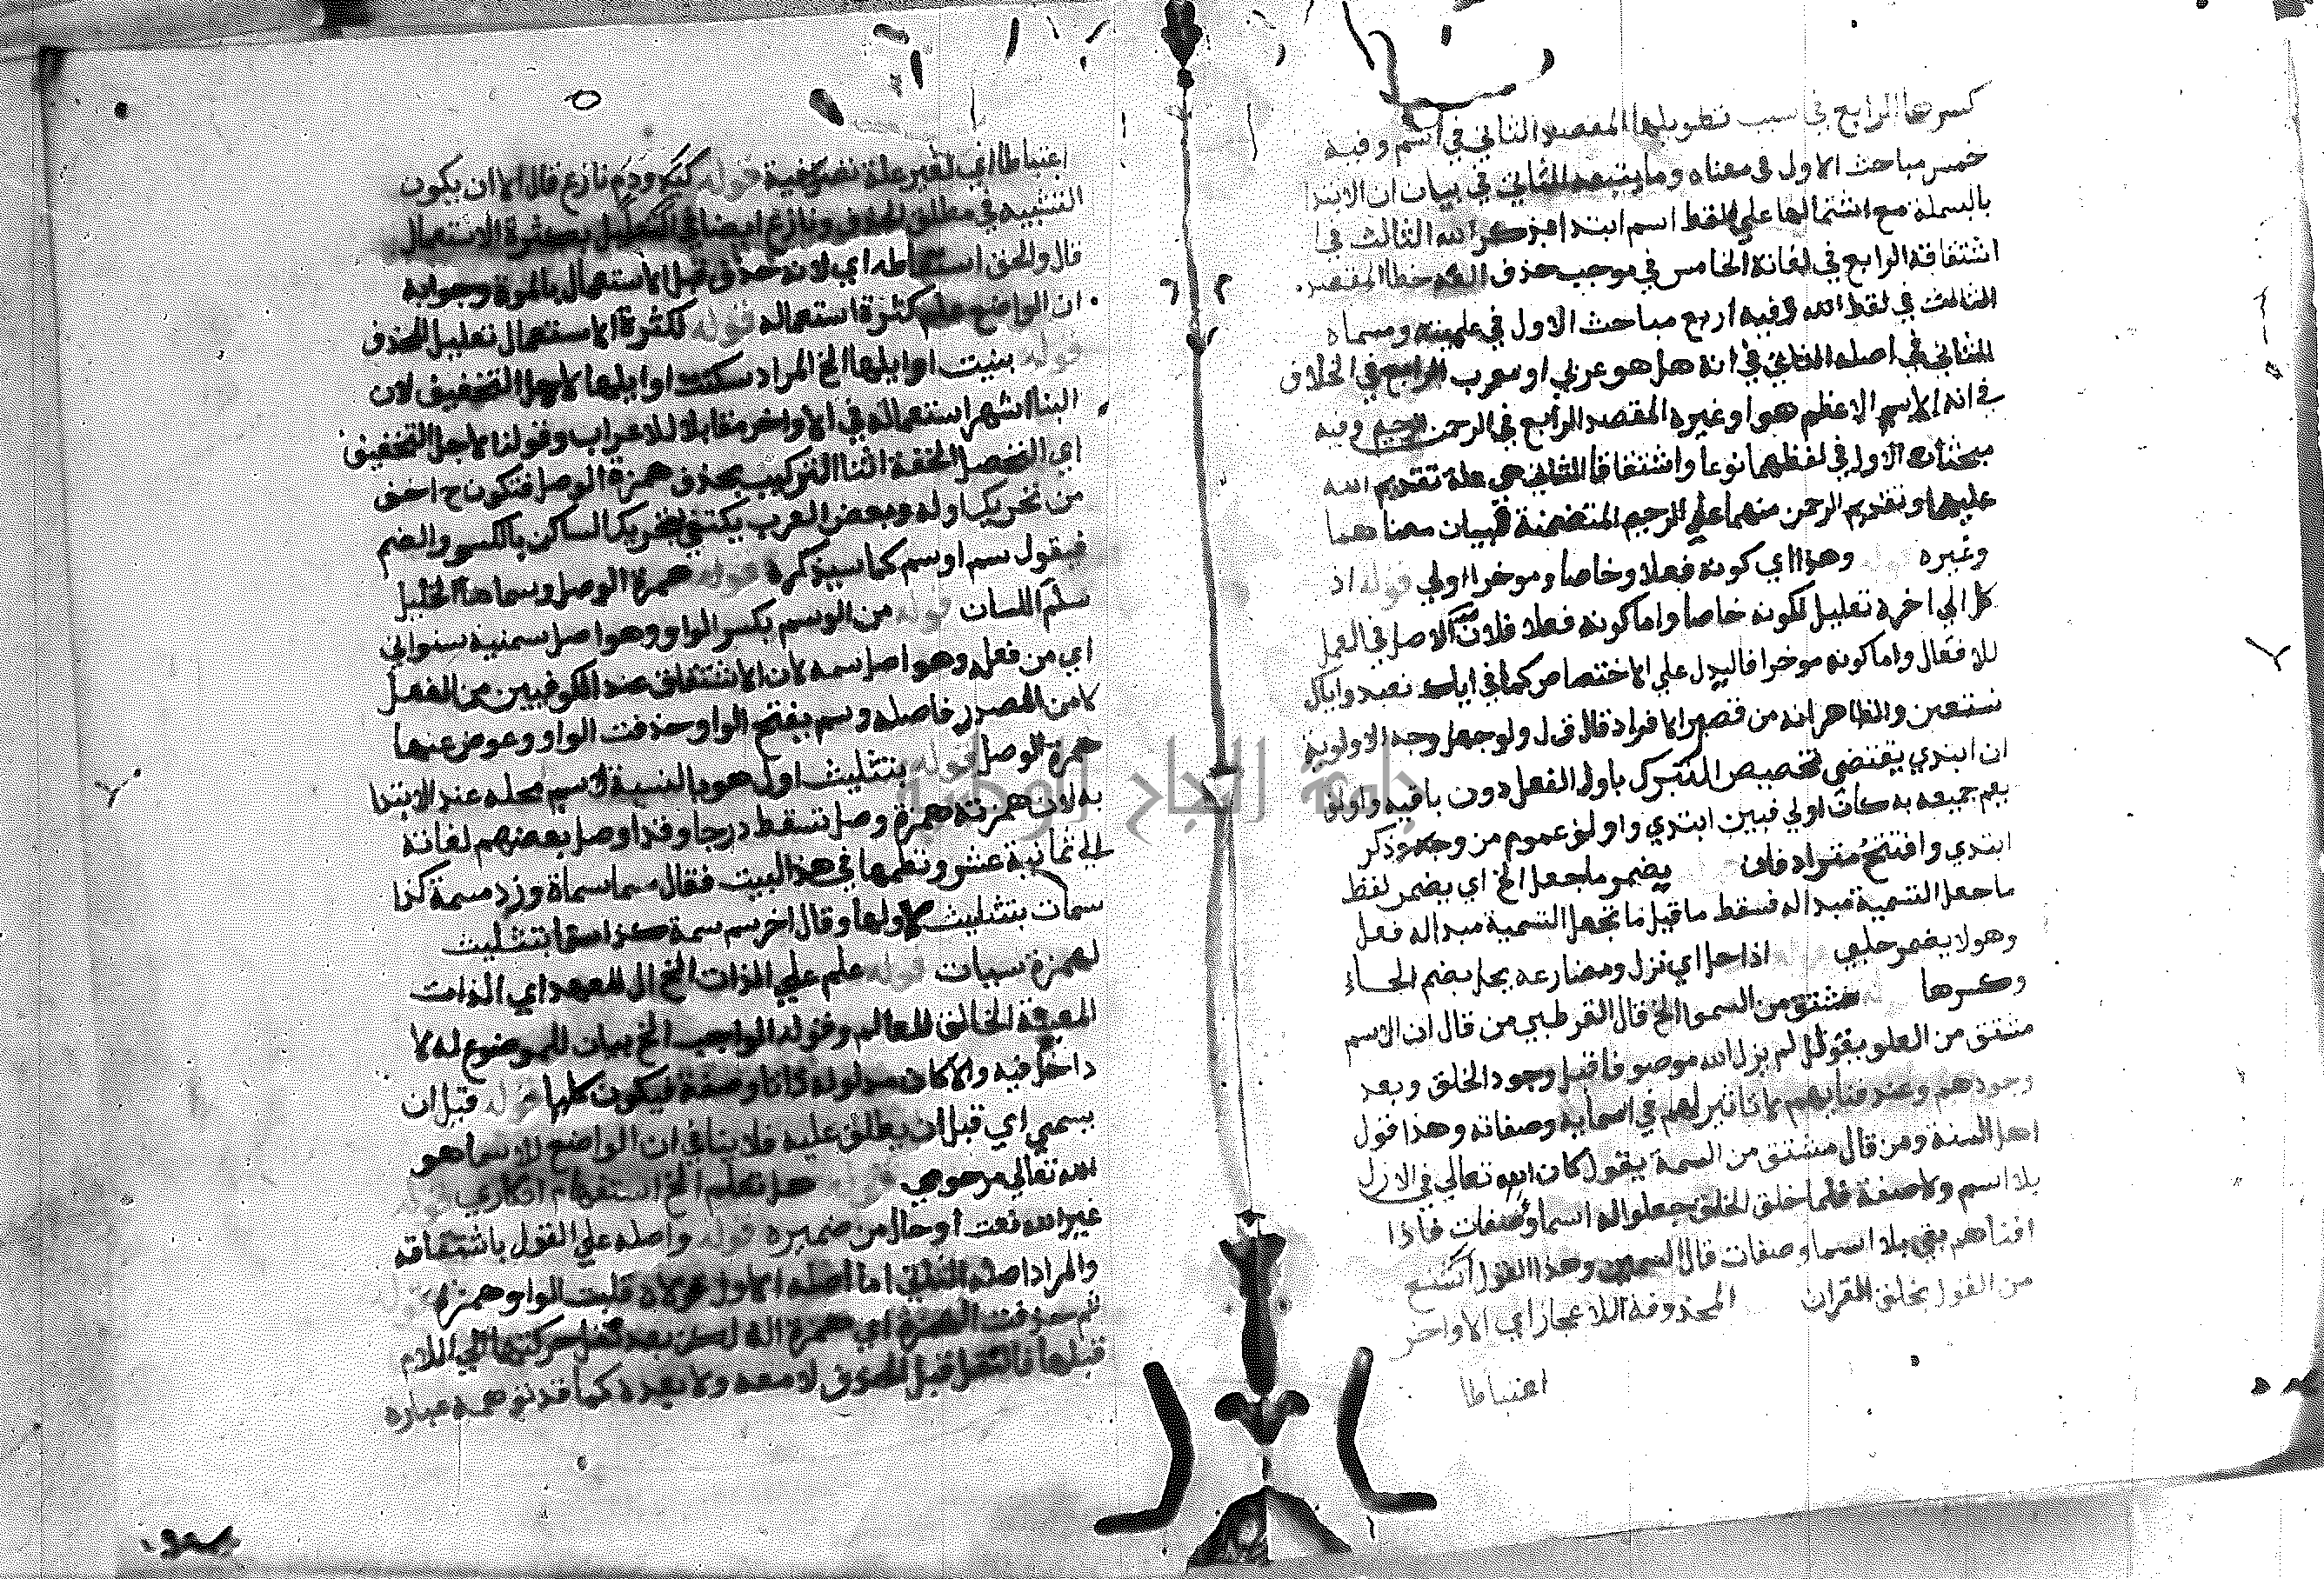 كسرها الرابع في سبب تطويلها المقصد الثاني في اسم وفيه
خمس مباحث الاول في معناه وما يتبعه الثاني في بيان ان الابتدا
بالبسملة مع اشتمالها علي لفظ اسم ابتدا بذكر الله الثالث في
اشتقاقه الرابع في لغاته الخامس في موجب حذف الفه خطا المقصد
الثالث في لفظ الله وفيه اربع مباحث الاول في علميته ومسماه
الثاني في اصله الثالث في انه هل هو عربي او معرب الرابع في الخلاف
في انه الاسم الاعظم هو او غيره المقصد الرابع في الرحمن الرحيم وفيه
مبحثان الاول في لفظهما نوعا واشتقاقا الثاني في علة تقديم الله
عليهما وتقديم الرحمن منهما علي الرحيم المتضمنة لبيان معناهما
وغيره قوله وهذا اي كونه فعلا وخاصا وموخرا اولي قوله اذ
كل الي اخره تعليل لكونه خاصا واما كونه فعلا فلان الاصل في العمل
للافعال واما كونه موخرا فاليدل علي الاختصاص كما في اياك نعبد واياك
نستعين والظاهر انه من قصر الافراد قال ق ل ولو جعل وجه الاولوية
ان ابتدي يقتضي تخصيص التبرك باول الفعل دون باقيه واولف
يعم جميعه به كان اولي فبين ابتدي واولف عموم من وجه وذكر
ابتدي وافتتح مترادفان يضمر ما جعل الخ اي يضمر لفظ
ما جعل التسمية مبدا له فسقط ما قيل ما تجعل التسمية مبدا له فعل
وهو لا يضمر حلبي قوله اذا حل اي نزل ومضارعه يحل بضم الحاء
وكسرها قوله مشتق من السمو الخ قال القرطبي من قال ان الاسم
مشتق من العلو يقول لم يزل الله موصوفا قبل وجود الخلق وبعد
وجودهم وعند فنايهم لا تاثير لهم في اسمايه وصفاته وهذا قول
اهل السنة ومن قال مشتق من السمة يقول كان الله تعالي في الازل
بلا اسم ولا صفة فلما خلق الخلق جعلوا له اسما وصفات فاذا
افناهم بقي بلا اسما وصفات قال السمين وهذا القول اشنع
من القول بخلق القران المحذوفة الاعجاز اي الاواخر
اعتباطا
اعتباطا اي لغير علة تصريفية قوله كيد ودم نازع قال الا ان يكون
التشبيه في مطلق الحذف ونازع ايضا في التعليل بكثرة الاستعمال
قال والحق اسقاطه اي لانه حذف قبل الاستعمال بالمرة وجوابه
ان الواضع علم كثرة استعماله قوله لكثرة الاستعمال تعليل للحذف
قوله بنيت اوايلها الخ المراد سكنت اوايلها لاجل التخفيف لان
البنا اشهر استعماله في الاواخر مقابلا للاعراب وقولنا لاجل التخفيف
اي لتحصل الخفة اثنا التركيب بحذف همزة الوصل فتكون ح اخف
من تحريك اوله وبعض العرب يكتفي بتحريك الساكن بالكسر والضم
فيقول سم او سم كما سيذكره قوله همزة الوصل وسماها الخليل
سلم اللسان قوله من الوسم بكسر الواو وهو اصل سمنيه سنواني
اي من فعله وهو اصل سمه لان الاشتقاق عند الكوفيين من الفعل
لا من المصدر فاصله وسم بفتح الواو حذفت الواو وعوض عنها
همزة الوصل قوله بتثليث اول هو بالنسبة لاسم محله عند الابتدا
به لان همزته همزة وصل تسقط درجا وقد اوصل بعضهم لغاته
الي ثمانية عشر ونظمها في هذا البيت فقال سما سماة وزد سمة كذا
سمات بتثليث لاولها وقال اخر سم سمة كذا سما بتثليث
لهمزة سيات قوله علم علي الذات الخ ال للعهد اي الذات
المعينة الخالق للعالم وقوله الواجب الخ بيان للموضوع له لا
داخل فيه والا كان مدلوله ذاتا وصفة فيكون كليا قوله قبل ان
يسمي اي قبل ان يطلق عليه فلا ينافي ان الواضع للاسما هو
الله تعالي مرحومي قوله هل تعلم الخ استفهام انكاري قوله
غير الله نعت او حال من ضميره قوله واصله علي القول باشتقاقه
والمراد اصله الثاني اما اصله الاول فولاه قلبت الواو همزة
ثم حذفت الهمزة اي همزة اله لكن بعد نقل حركتها الي اللام
قبلها فالنقل قبل الحذف لا معه ولا بعده كما قد توهمه عباره
جامعة النجاح الوطنية